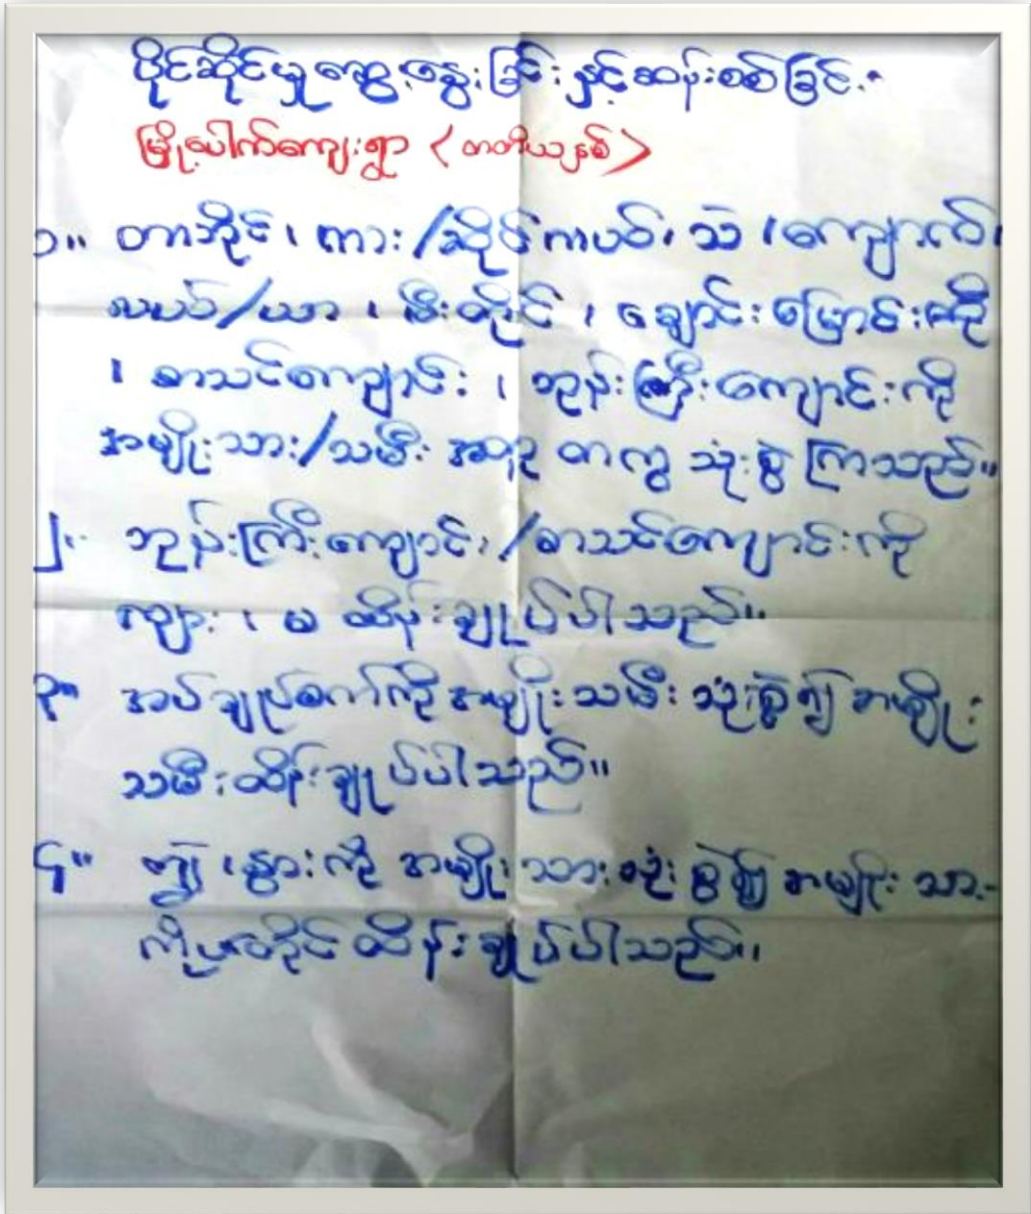 ပိုင်ဆိုင်မှု ဆွေးနွေးခြင်း နှင့် ဆန်းစစ်ခြင်း။
မြို့ပေါက်ကျေးရွာ (တတိယနှစ်)
၁။ တာဘိုင်၊ ကား/ဆိုင်ကယ်၊ သဲ၊ ကျောက်၊
လယ်/ယာ၊ မီးတိုင်၊ ချောင်းမြောင်း
၊ စာသင်ကျောင်း၊ ဘုန်းကြီးကျောင်းကို
အမျိုးသား/သမီး အတူတကွ သုံးစွဲကြသည်။
၂။ ဘုန်းကြီးကျောင်း/စာသင်ကျောင်းကို
ကျား၊ မ ထိန်းချုပ်ပါသည်။
၃။ အပ်ချုပ်စက်ကိုအမျိုးသမီး သုံးစွဲ၍ အမျိုး
သမီးထိန်းချုပ်ပါသည်။
၄။ ကျွဲ၊ နွားကို အမျိုးသားသုံးစွဲ၍ အမျိုးသား
ကိုယ်တိုင် ထိန်းချုပ်ပါသည်။